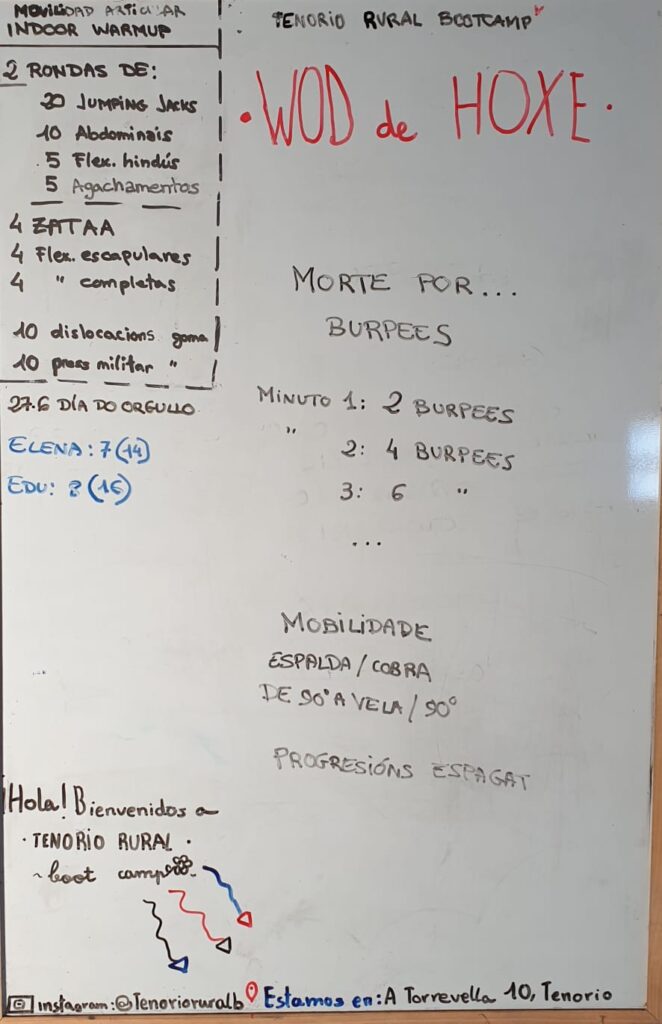 MOVILIDAD ARTICULAR
INDOOR WARMUP
2 RONDAS DE:
20 JUMPING JACKS
10 Abdominais
5 Flex. hindús
5 Agachamentos
4 ZATAA
4 Flex. escapulares
4 " completas
10 dislocacions goma
10 press militar "
27.6 DÍA DO ORGULLO
ELENA: 7 (14)
EDU: 8 (16)
TENORIO RURAL BOOTCAMP
·WOD de HOXE·
MORTE POR...
BURPEES
MINUTO 1: 2 BURPEES
" 2: 4 BURPEES
3: 6 "
...
MOBILIDADE
ESPALDA/COBRA
DE 90° A VELA/90°
PROGRESIÓNS ESPAGAT
¡Hola! Bienvenidos a
·TENORIO RURAL·
~boot camp
instagram:@Tenorioruralb Estamos en: A Torrevella 10, Tenorio